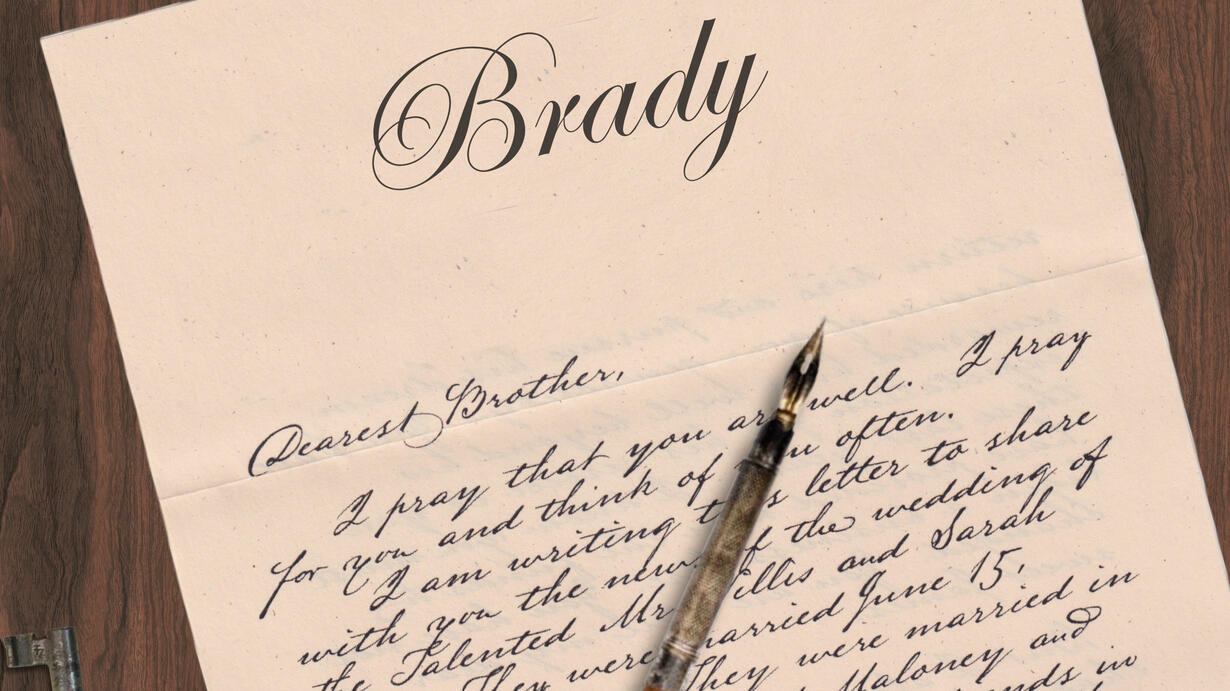 Brady
Dearest Brother,
I pray that you are well. I pray
for you and think of you often.
I am writing this letter to share
with you the news of the wedding of
the Talented Mr. Willis and Sarah
They were married June 15.
They were married in
Maloney and